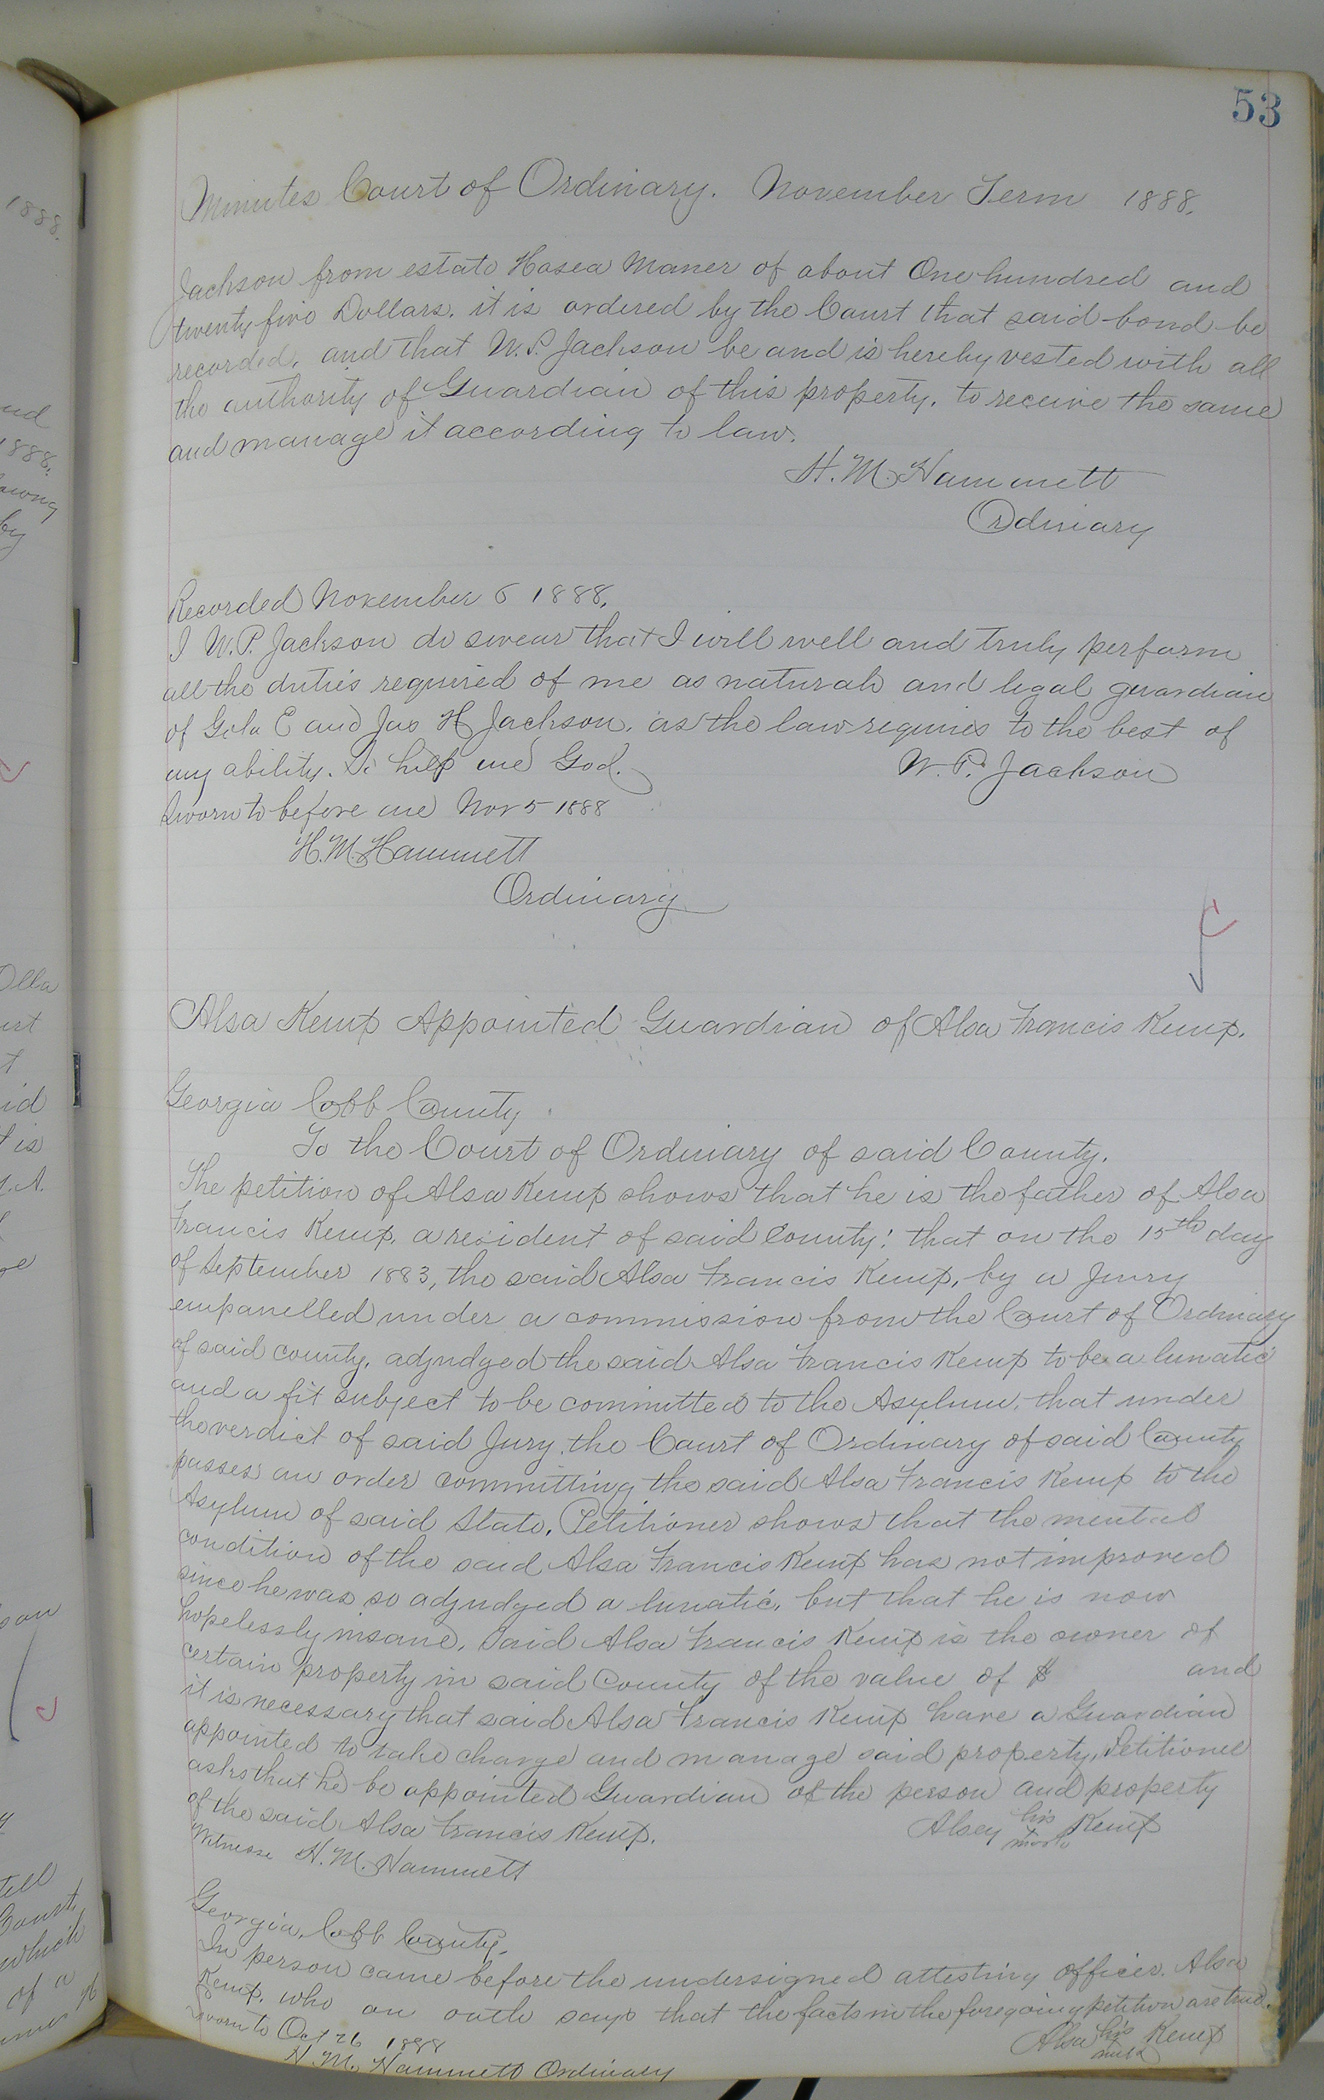 53
Minutes Court of Ordinary. November Term 1888.
Jackson from estate Hosea Maner of about One hundred and
twenty five Dollars. it is ordered by the Court that said bond be
recorded, and that W. P. Jackson be and is hereby vested with all
the authority of Guardian of this property. to receive the same
and manage it according to law.
H. M. Hammett
Ordinary
Recorded November 6 1888.
I W. P. Jackson do swear that I will well and truly perform
all the duties required of me as natural and legal guardian
of E and Jas H Jackson. as the law requires to the best of
my ability. So help me God.
W. P. Jackson
Sworn to before me Nov 5 1888
H. M. Hammett
Ordinary
Alsa Kemp Appointed Guardian of Alsa Francis Kemp.
Georgia Cobb County
To the Court of Ordinary of said County.
The petition of Alsa Kemp shows that he is the father of Alsa
Francis Kemp. a resident of said County: that on the 15th day
of September 1883, the said Alsa Francis Kemp, by a Jury
empanelled under a commission from the Court of Ordinary
of said county, adjudged the said Alsa Francis Kemp to be a lunatic
and a fit subject to be committed to the Asylum. that under
the verdict of said Jury. the Court of Ordinary of said County
passes an order committing the said Alsa Francis Kemp to the
Asylum of said State. Petitioner shows that the mental
condition of the said Alsa Francis Kemp has not improved
since he was so adjudged a lunatic, but that he is now
hopelessly insane. Said Alsa Francis Kemp is the owner of
certain property in said County of the value of $ and
it is necessary that said Alsa Francis Kemp have a Guardian
appointed to take charge and manage said property, Petitioner
asks that he be appointed Guardian of the person and property
of the said Alsa Francis Kemp.
Alsey his mark Kemp
Witness H. M. Hammett
Georgia, Cobb County.
In person came before the undersigned attesting officer. Alsa
Kemp. who on oath says that the facts in the foregoing petition are true.
Sworn to Oct 26 1888
Alsa his mark Kemp
H. M. Hammett Ordinary